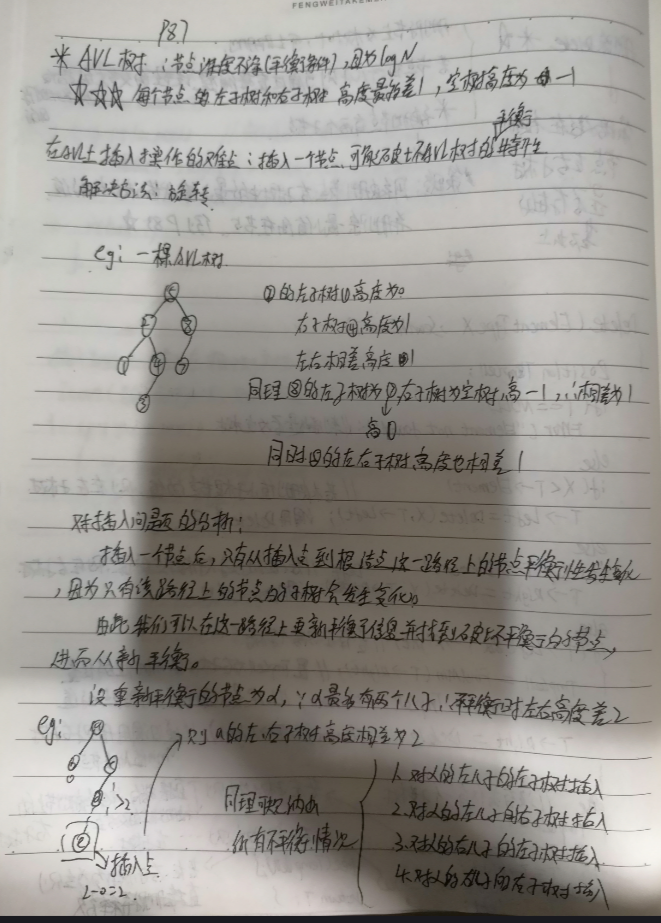 FENGWEITAKEM
P87
* AVL树：节点深度不深(平衡条件),因为logN
☆☆☆ 每个节点的左子树和右子树高度最多差1，空树高度为 -1
平衡
在AVL上插入操作的难点：插入一个节点可能破坏AVL树的特性
解决方法：旋转
eg: 一棵AVL树
⑤
② ⑧
① ④ ⑦
③
②的左子树①高度为0
右子树④高度为1
左右相差高度1
同理⑧的左子树为⑦,右子树为空树,高-1, ∴相差为1
高0
同时⑤的左右子树高度也相差1
对插入问题的分析：
插入一个节点后,只有从插入点到根结点这一路径上的节点平衡性发生变化
,因为只有该路径上的节点的子树会发生变化。
由此我们可以在这一路径上更新平衡信息并找到破坏平衡的节点,
进而从新平衡。
设重新平衡的节点为α, ∵α最多有两个儿子∴不平衡时左右高度差2
eg:
则α的左右子树高度相差为2
>2
插入点
2-0=2
同理可归纳出
所有不平衡情况
1.对α的左儿子的左子树插入
2.对α的左儿子的右子树插入
3.对α的右儿子的左子树插入
4.对α的右儿子的右子树插入